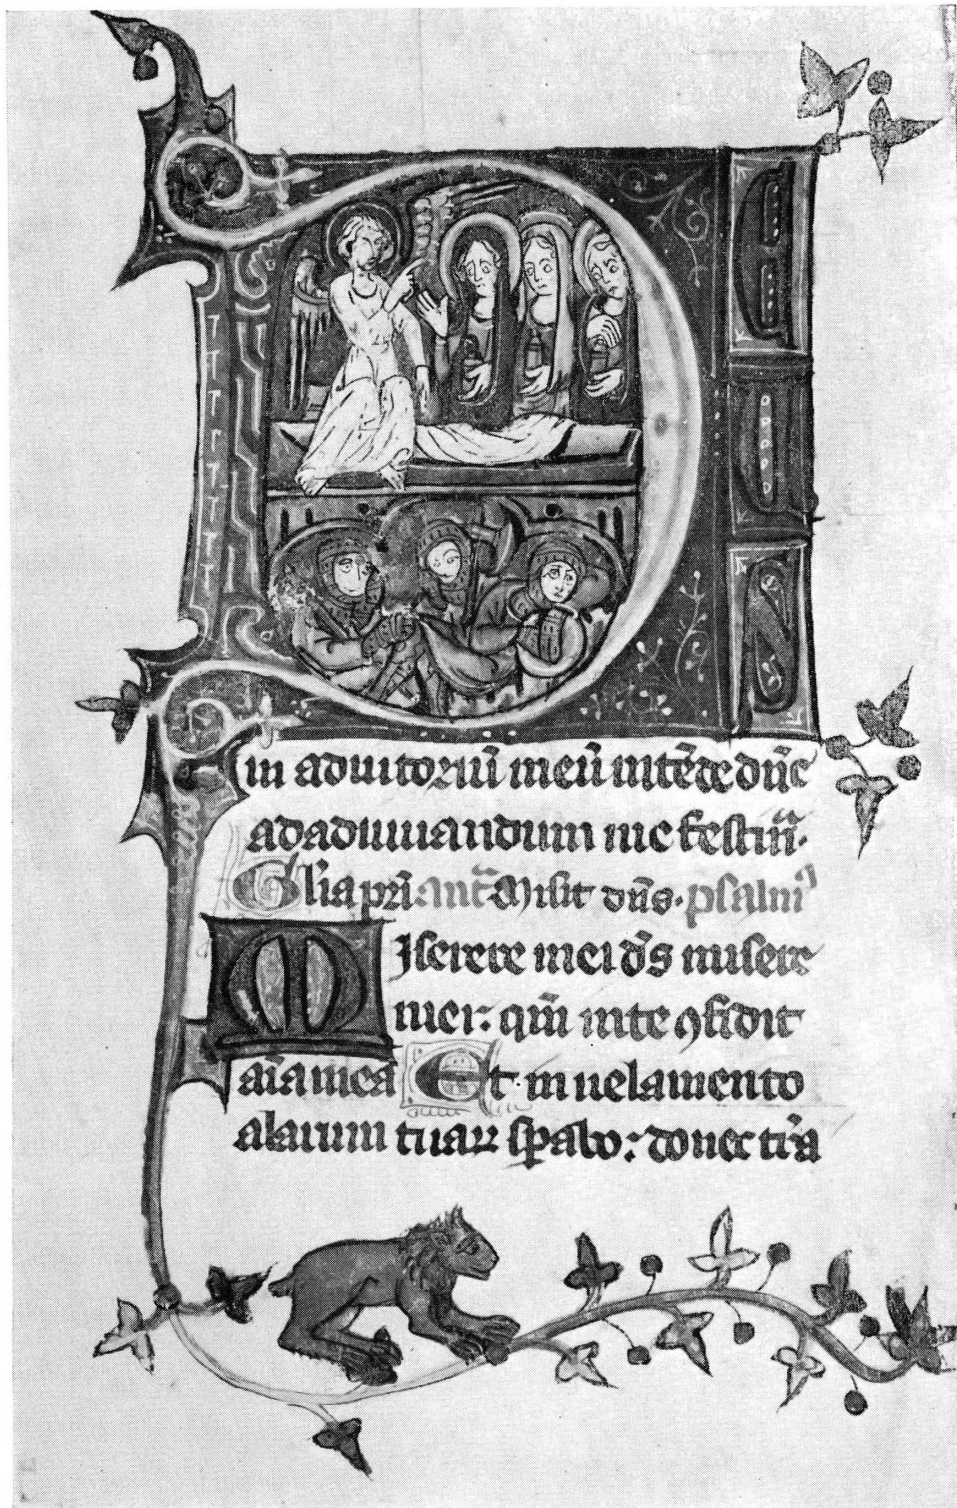 DEUS
in adiutoriū meū intēde dn̄e
ad adiuuandum me festin̄a.
Gl̄ia pr̄i ant̄ Misit dn̄s. psalmꝰ
Miserere mei ds̄ misere
mei: qm̄ in te ꝯfidit
aīa mea Et in uelamento
alarum tuaꝝ sꝑabo: donec tr̄a